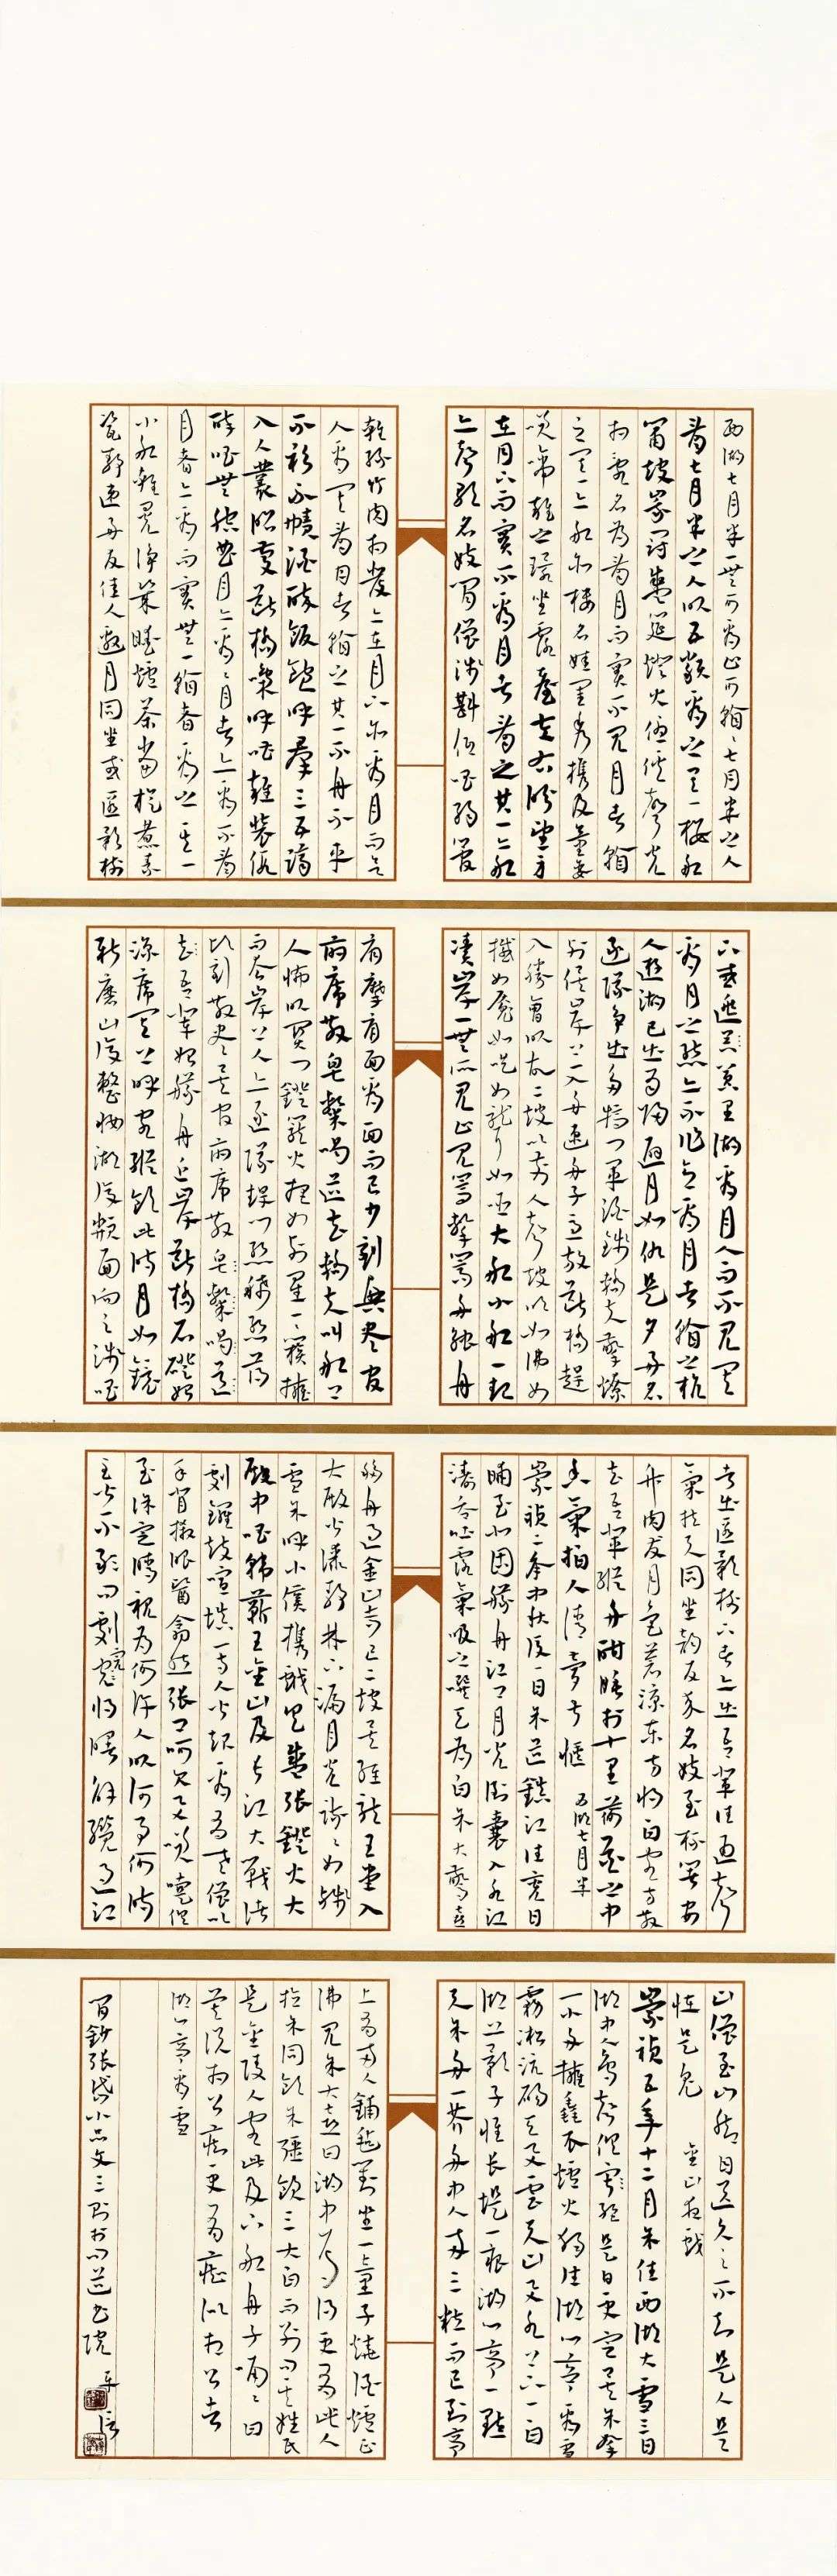 西湖七月半一無可看止可看、七月半之人
看七月半之人以五類看之其一樓船
簫鼓峨冠盛筵燈火優傒聲光
相亂名為看月而實不見月者看
之其一亦船亦樓名娃閨秀攜及童孌
笑啼雜之環坐露臺左右盼望身
在月下而實不看月者看之其一亦船
亦聲歌名妓閒僧淺斟低唱弱管
輕絲竹肉相發亦在月下亦看月而欲
人看其看月者看之其一不舟不車
不衫不幘酒醉飯飽呼群三五躋
入人叢昭慶斷橋嘄呼嘈雜裝假
醉唱無腔曲月亦看、月者亦看不看
月者亦看而實無一看者看之其一
小船輕幌淨几暖爐茶鐺旋煮素
瓷靜遞好友佳人邀月同坐或匿影樹
下或逃囂裏湖看月人而不見其
看月之態亦不作意看月者看之杭
人遊湖巳出酉歸避月如仇是夕好名
逐隊爭出多犒門軍酒錢轎夫擎燎
列俟岸上一入舟速舟子急放斷橋趕
入勝會以故二鼓以前人聲鼓吹如沸如
撼如魘如囈如聾如啞大船小船一齊
湊岸一無所見止見篙擊篙舟觸舟
肩摩肩面看面而已少刻興盡官
府席散皂隸喝道去轎夫叫船上
人怖以關門燈籠火把如列星一一簇擁
而去岸上人亦逐隊趕門漸稀漸薄
頃刻散盡矣官府席散皂隸喝道
去吾輩始艤舟近岸斷橋石磴始
涼席其上呼客縱飲此時月如鏡
新磨山復整妝湖復頮面向之淺唱
者出匿影樹下者亦出吾輩往通聲
氣拉與同坐韻友來名妓至杯箸安
竹肉發月色蒼涼東方將白客方散
去吾輩縱舟酣睡於十里荷花之中
香氣拍人清夢甚愜 西湖七月半
崇禎二年中秋後一日余道鎮江往兗日
晡至北固艤舟江口月光倒囊入水江
濤吞吐露氣吸之噀天為白余大驚喜
移舟過金山寺已二鼓矣經龍王堂入
大殿皆漆靜林下漏月光疏疏如殘
雪余呼小傒攜戲具盛張燈火大
殿中唱韓蘄王金山及長江大戰諸
劇鑼鼓喧填一寺人皆起看有老僧以
手背摋眼翳翕然張口呵欠與笑嚏俱
至徐定睛視為何許人以何事何時
至皆不敢問劇完將曙解纜過江
山僧至山腳目送久之不知是人是
怪是鬼 金山夜戲
崇禎五年十二月余住西湖大雪三日
湖中人鳥聲俱絕是日更定矣余拏
一小舟擁毳衣爐火獨往湖心亭看雪
霧凇沆碭天與雲與山與水上下一白
湖上影子惟長堤一痕湖心亭一點
與余舟一芥舟中人兩三粒而已到亭
上有兩人鋪氈對坐一童子燒酒爐正
沸見余大喜曰湖中焉得更有此人
拉余同飲余強飲三大白而別問其姓氏
是金陵人客此及下船舟子喃喃曰
莫說相公癡更有癡似相公者
湖心亭看雪
閒鈔張岱小品文三則於問道書院